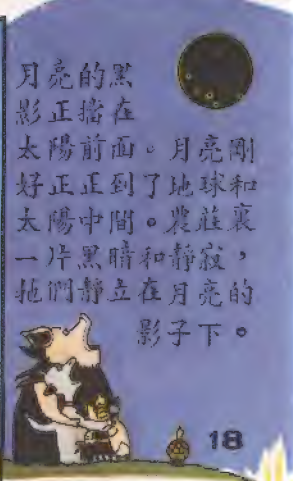 月亮的黑
影正擋在
太陽前面。月亮剛
好正正到了地球和
太陽中間。農莊裏
一片黑暗和靜寂，
牠們靜立在月亮的
影子下。
18